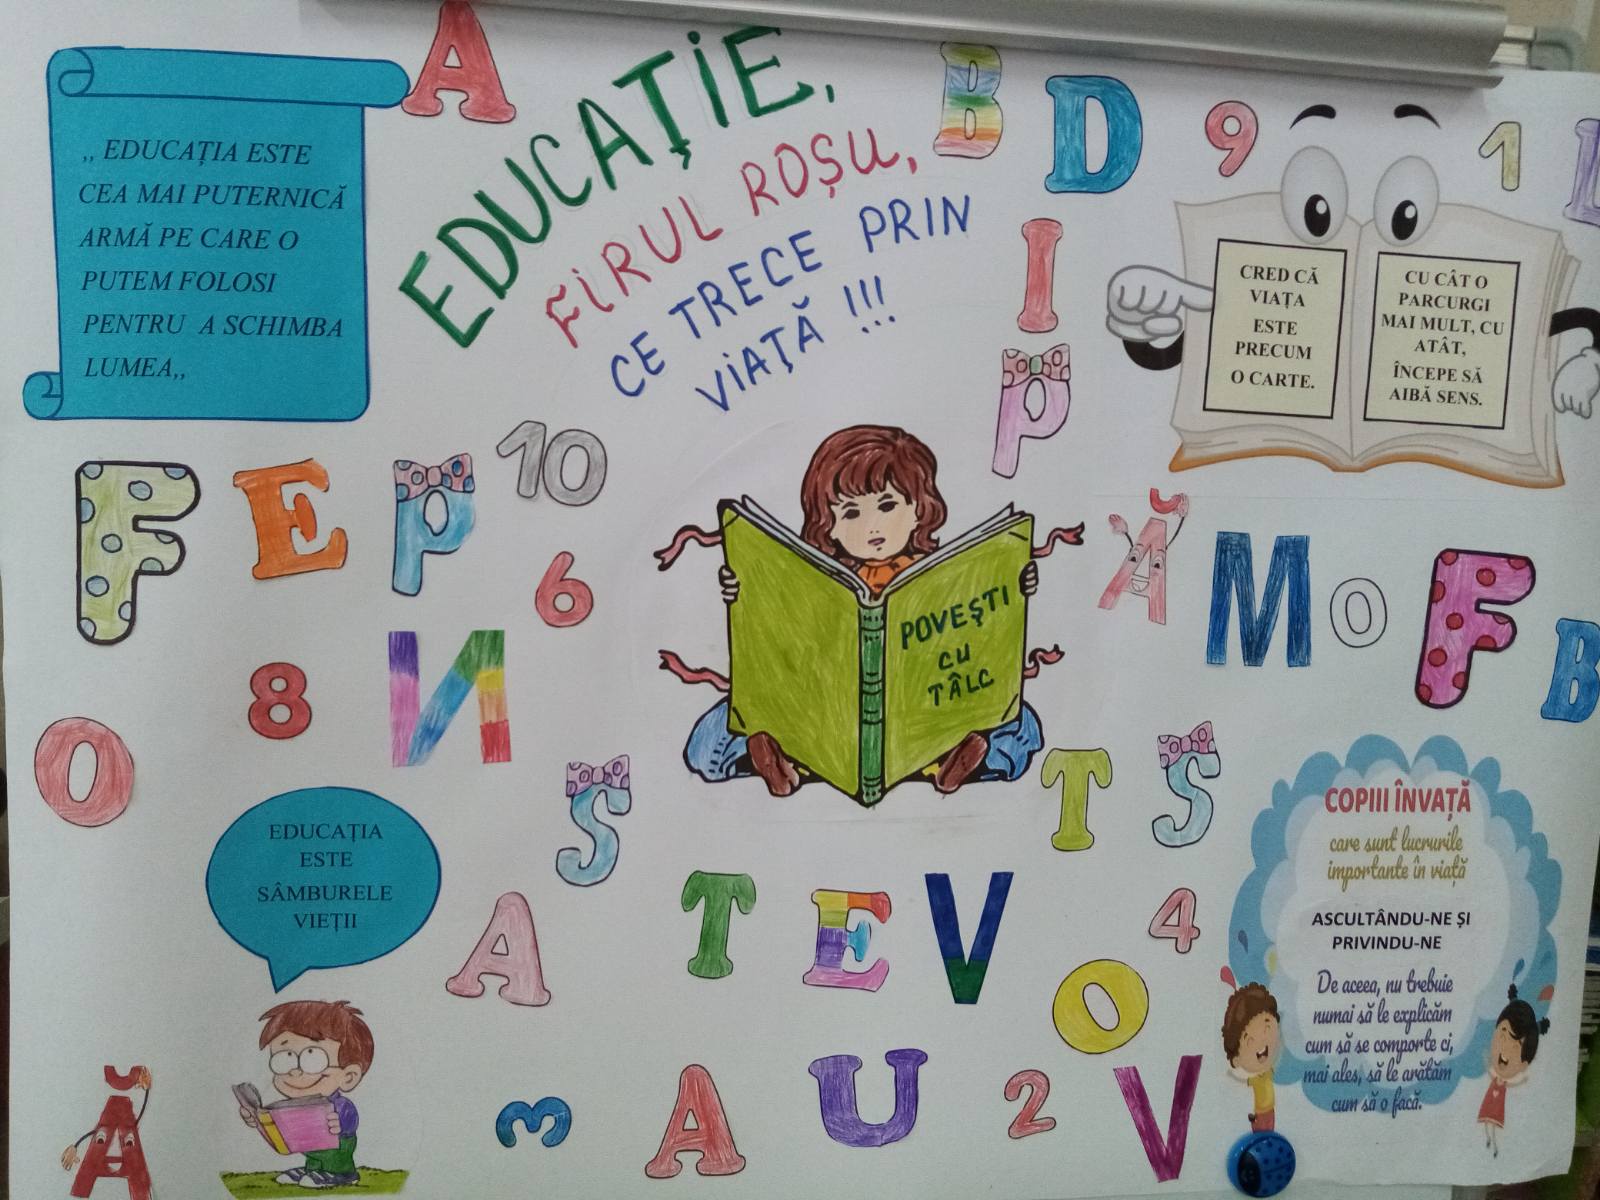 ,, EDUCAȚIA ESTE
CEA MAI PUTERNICĂ
ARMĂ PE CARE O
PUTEM FOLOSI
PENTRU A SCHIMBA
LUMEA,,
A
EDUCAȚIE,
FIRUL ROȘU,
CE TRECE PRIN
VIAȚĂ !!!
B
D
9
1
I
P
CRED CĂ
VIAȚA
ESTE
PRECUM
O CARTE.
CU CÂT O
PARCURGI
MAI MULT, CU
ATÂT,
ÎNCEPE SĂ
AIBĂ SENS.
F
E
P
10
6
8
И
O
POVEȘTI
CU
TÂLC
Ă
M
O
F
B
EDUCAȚIA
ESTE
SÂMBURELE
VIEȚII
S
T
S
A
T
E
V
4
O
COPIII ÎNVAȚĂ
care sunt lucrurile
importante în viață
ASCULTÂNDU-NE ȘI
PRIVINDU-NE
De aceea, nu trebuie
numai să le explicăm
cum să se comporte ci,
mai ales, să le arătăm
cum să o facă.
Ă
3
A
U
2
V